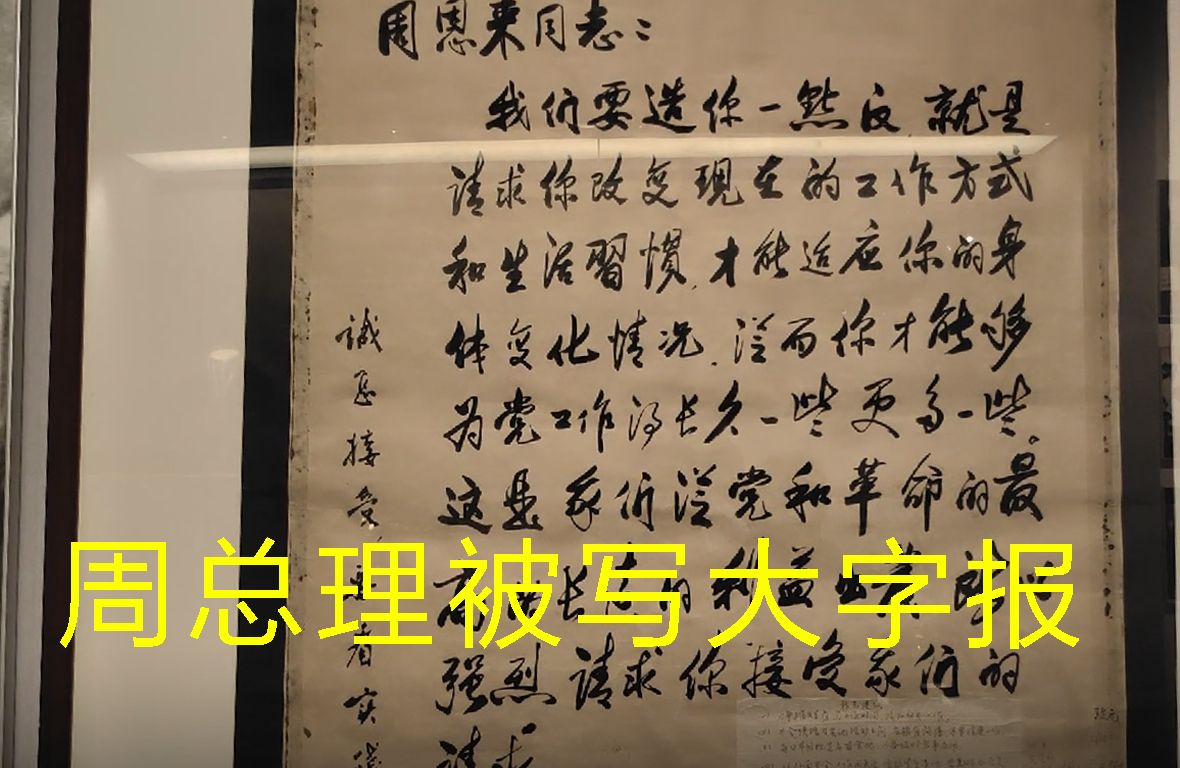 周恩来同志：
我们要造你一点反，就是
请求你改变现在的工作方式
和生活習惯，才能适应你的身
体变化情况，从而你才能够
为党工作得长久一些更多一些。
这是我们从党和革命的最
高 长 的利益出 
强烈请求你接受我们的
请求
诚恳接受
看实
周总理被写大字报